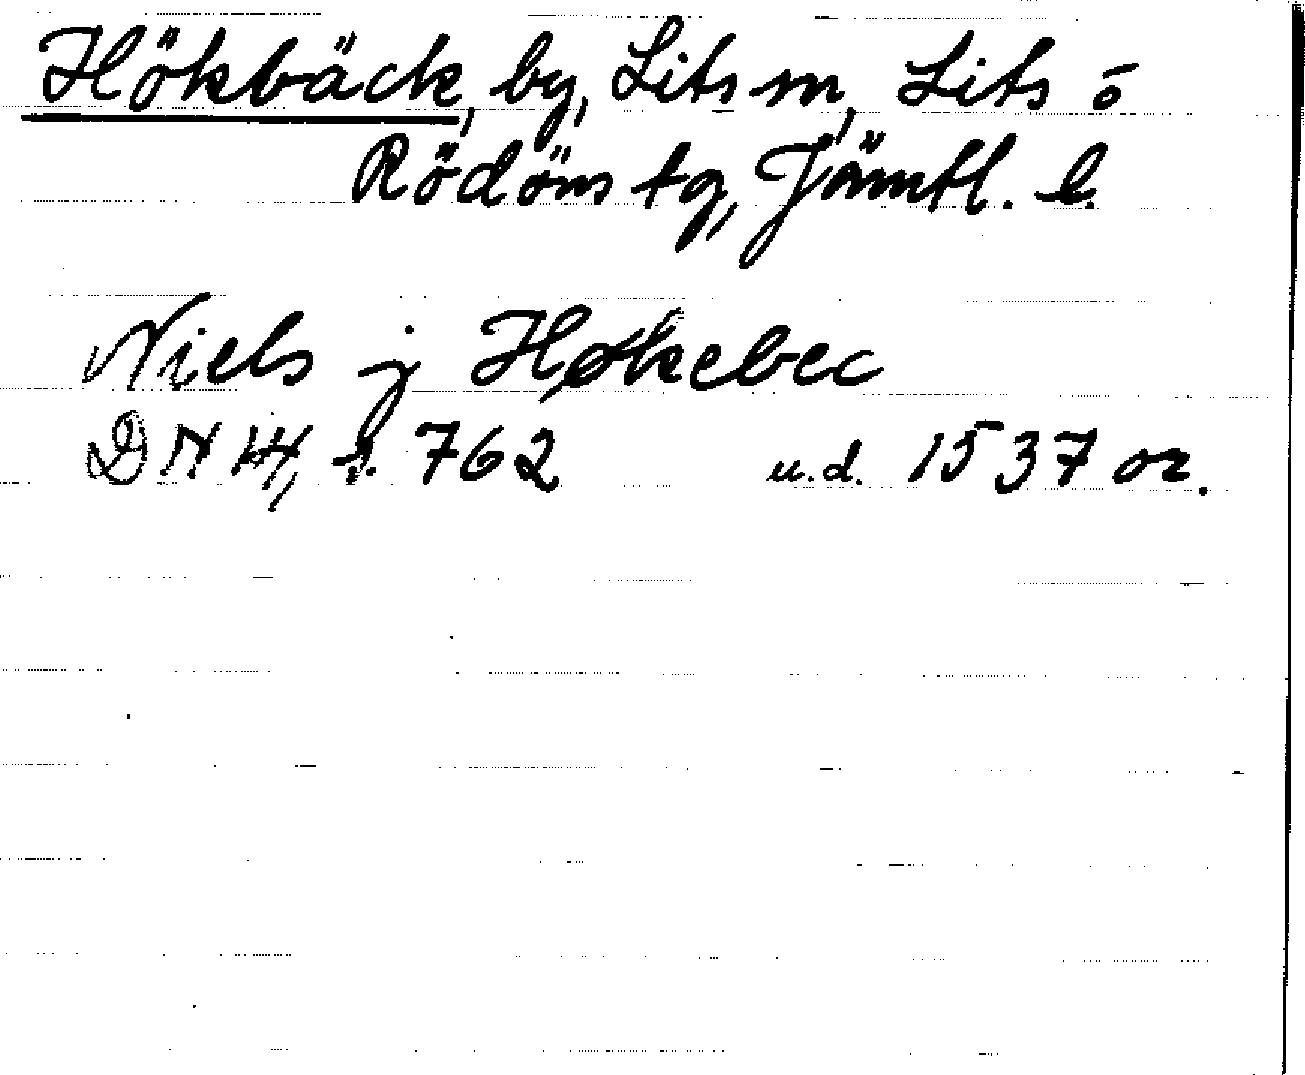 Hökbäck, by, Lits sn, Lits ō
Rödöns tg, Jämtl. l.
Niels j Høkebec
DN 14, s. 762 u.d. 1537 or.